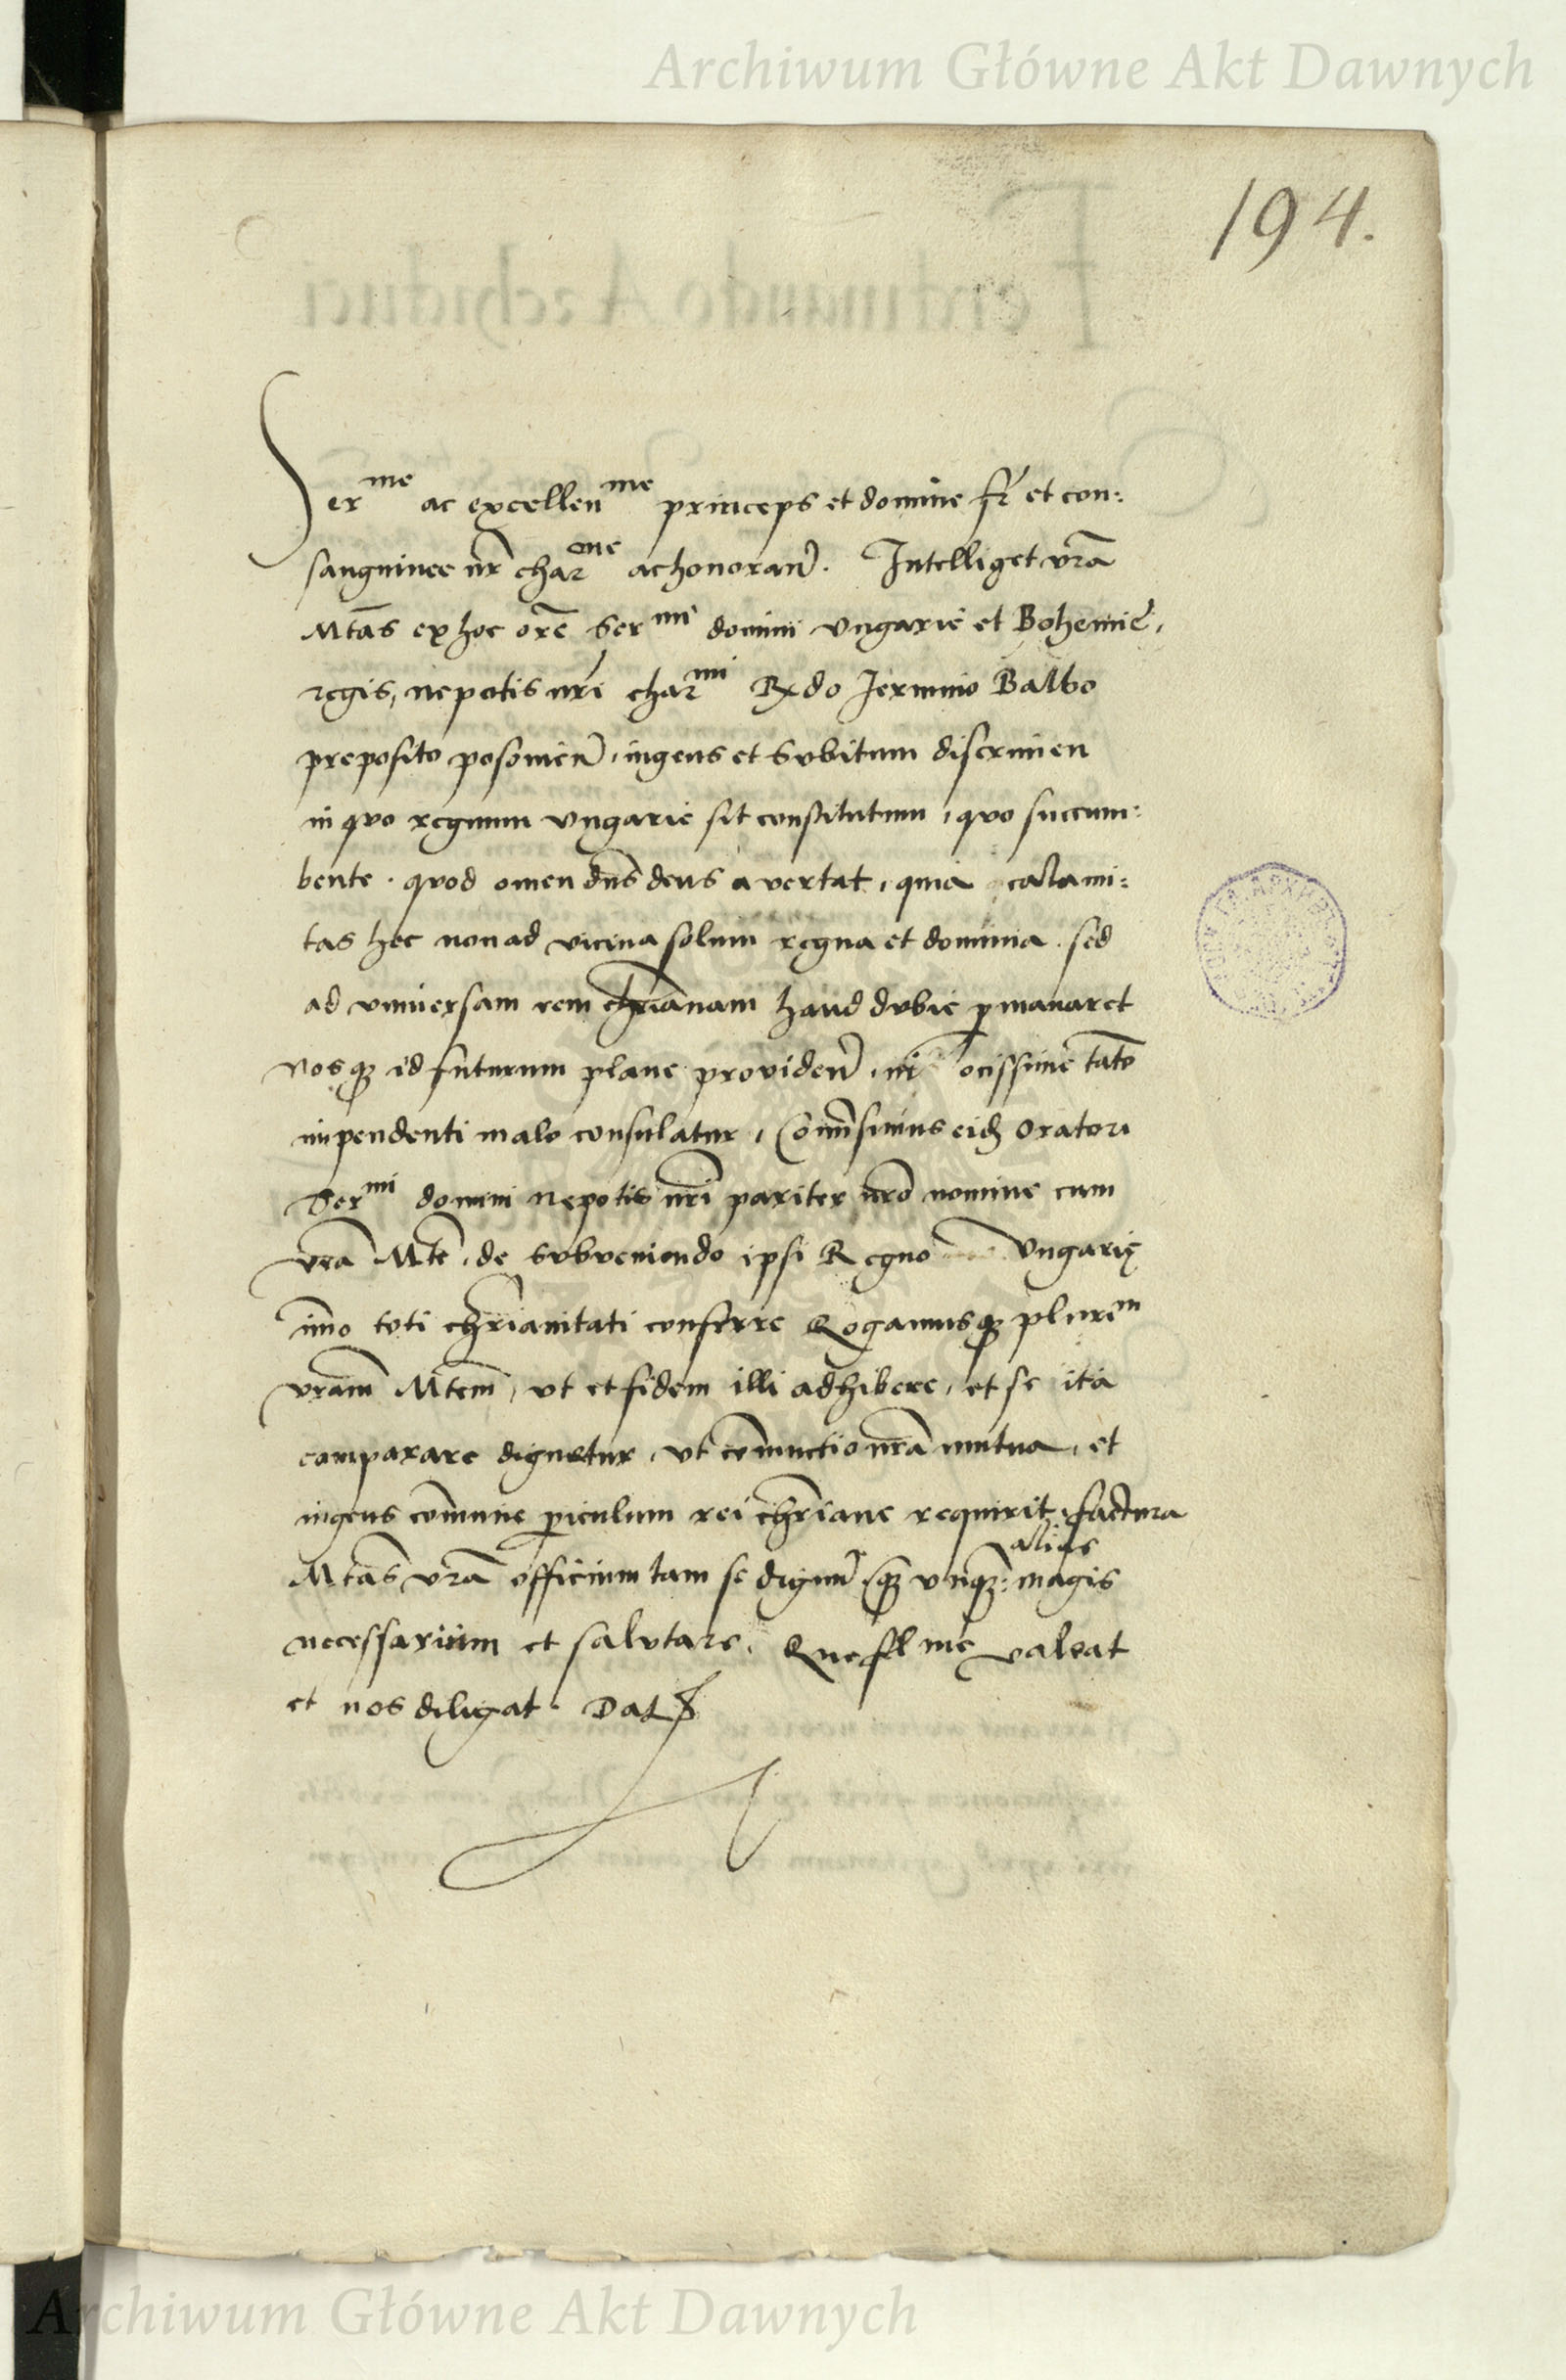 Archiwum Główne Akt Dawnych
194.
Ser^me ac excellen^me princeps et domine fr̃ et con:
sanguinee nr̃ char^me ac honoran̄. Intelliget vrã
Mtãs ex hoc orẽ Ser^mi domini Vngarie et Bohemie,
regis, nepotis nrĩ char^mi Rx̃do Jeronimo Balbo
preposito posonien̄, ingens et subitum discrimen
in quo regnum Vngarie sit constitutum, quo succum:
bente. quod omen dñs deus avertat, quia calami:
tas hec non ad vicina solum regna et dominia. sed
ad vniversam rem chrĩanam haud dubie ꝑmanaret
Nosqȝ id futurum plane providen̄, ni ocissime tãto
impendenti malo consulatur, Com̃simus eidȝ Oratori
Ser^mi domini Nepotis nrĩ pariter nrõ nomine cum
vrã Mtẽ, de subveniendo ipsi Regno Vngarię
im̃o toti chrĩanitati conferre Rogamusqȝ plure^m
vrãm Mtẽm, vt et fidem illi adhibere, et se ita
comparare dignetur, vt coniunctio nrã mutua, et
ingens com̃une ꝑiculum rei chrĩane requirit, factura
alias
Mtãs vrã officium tam se dignũ qȝ vnqȝ: magis
necessarium et salutare. Que fel^me valeat
et nos diligat. Dat̃
Archiwum Główne Akt Dawnych